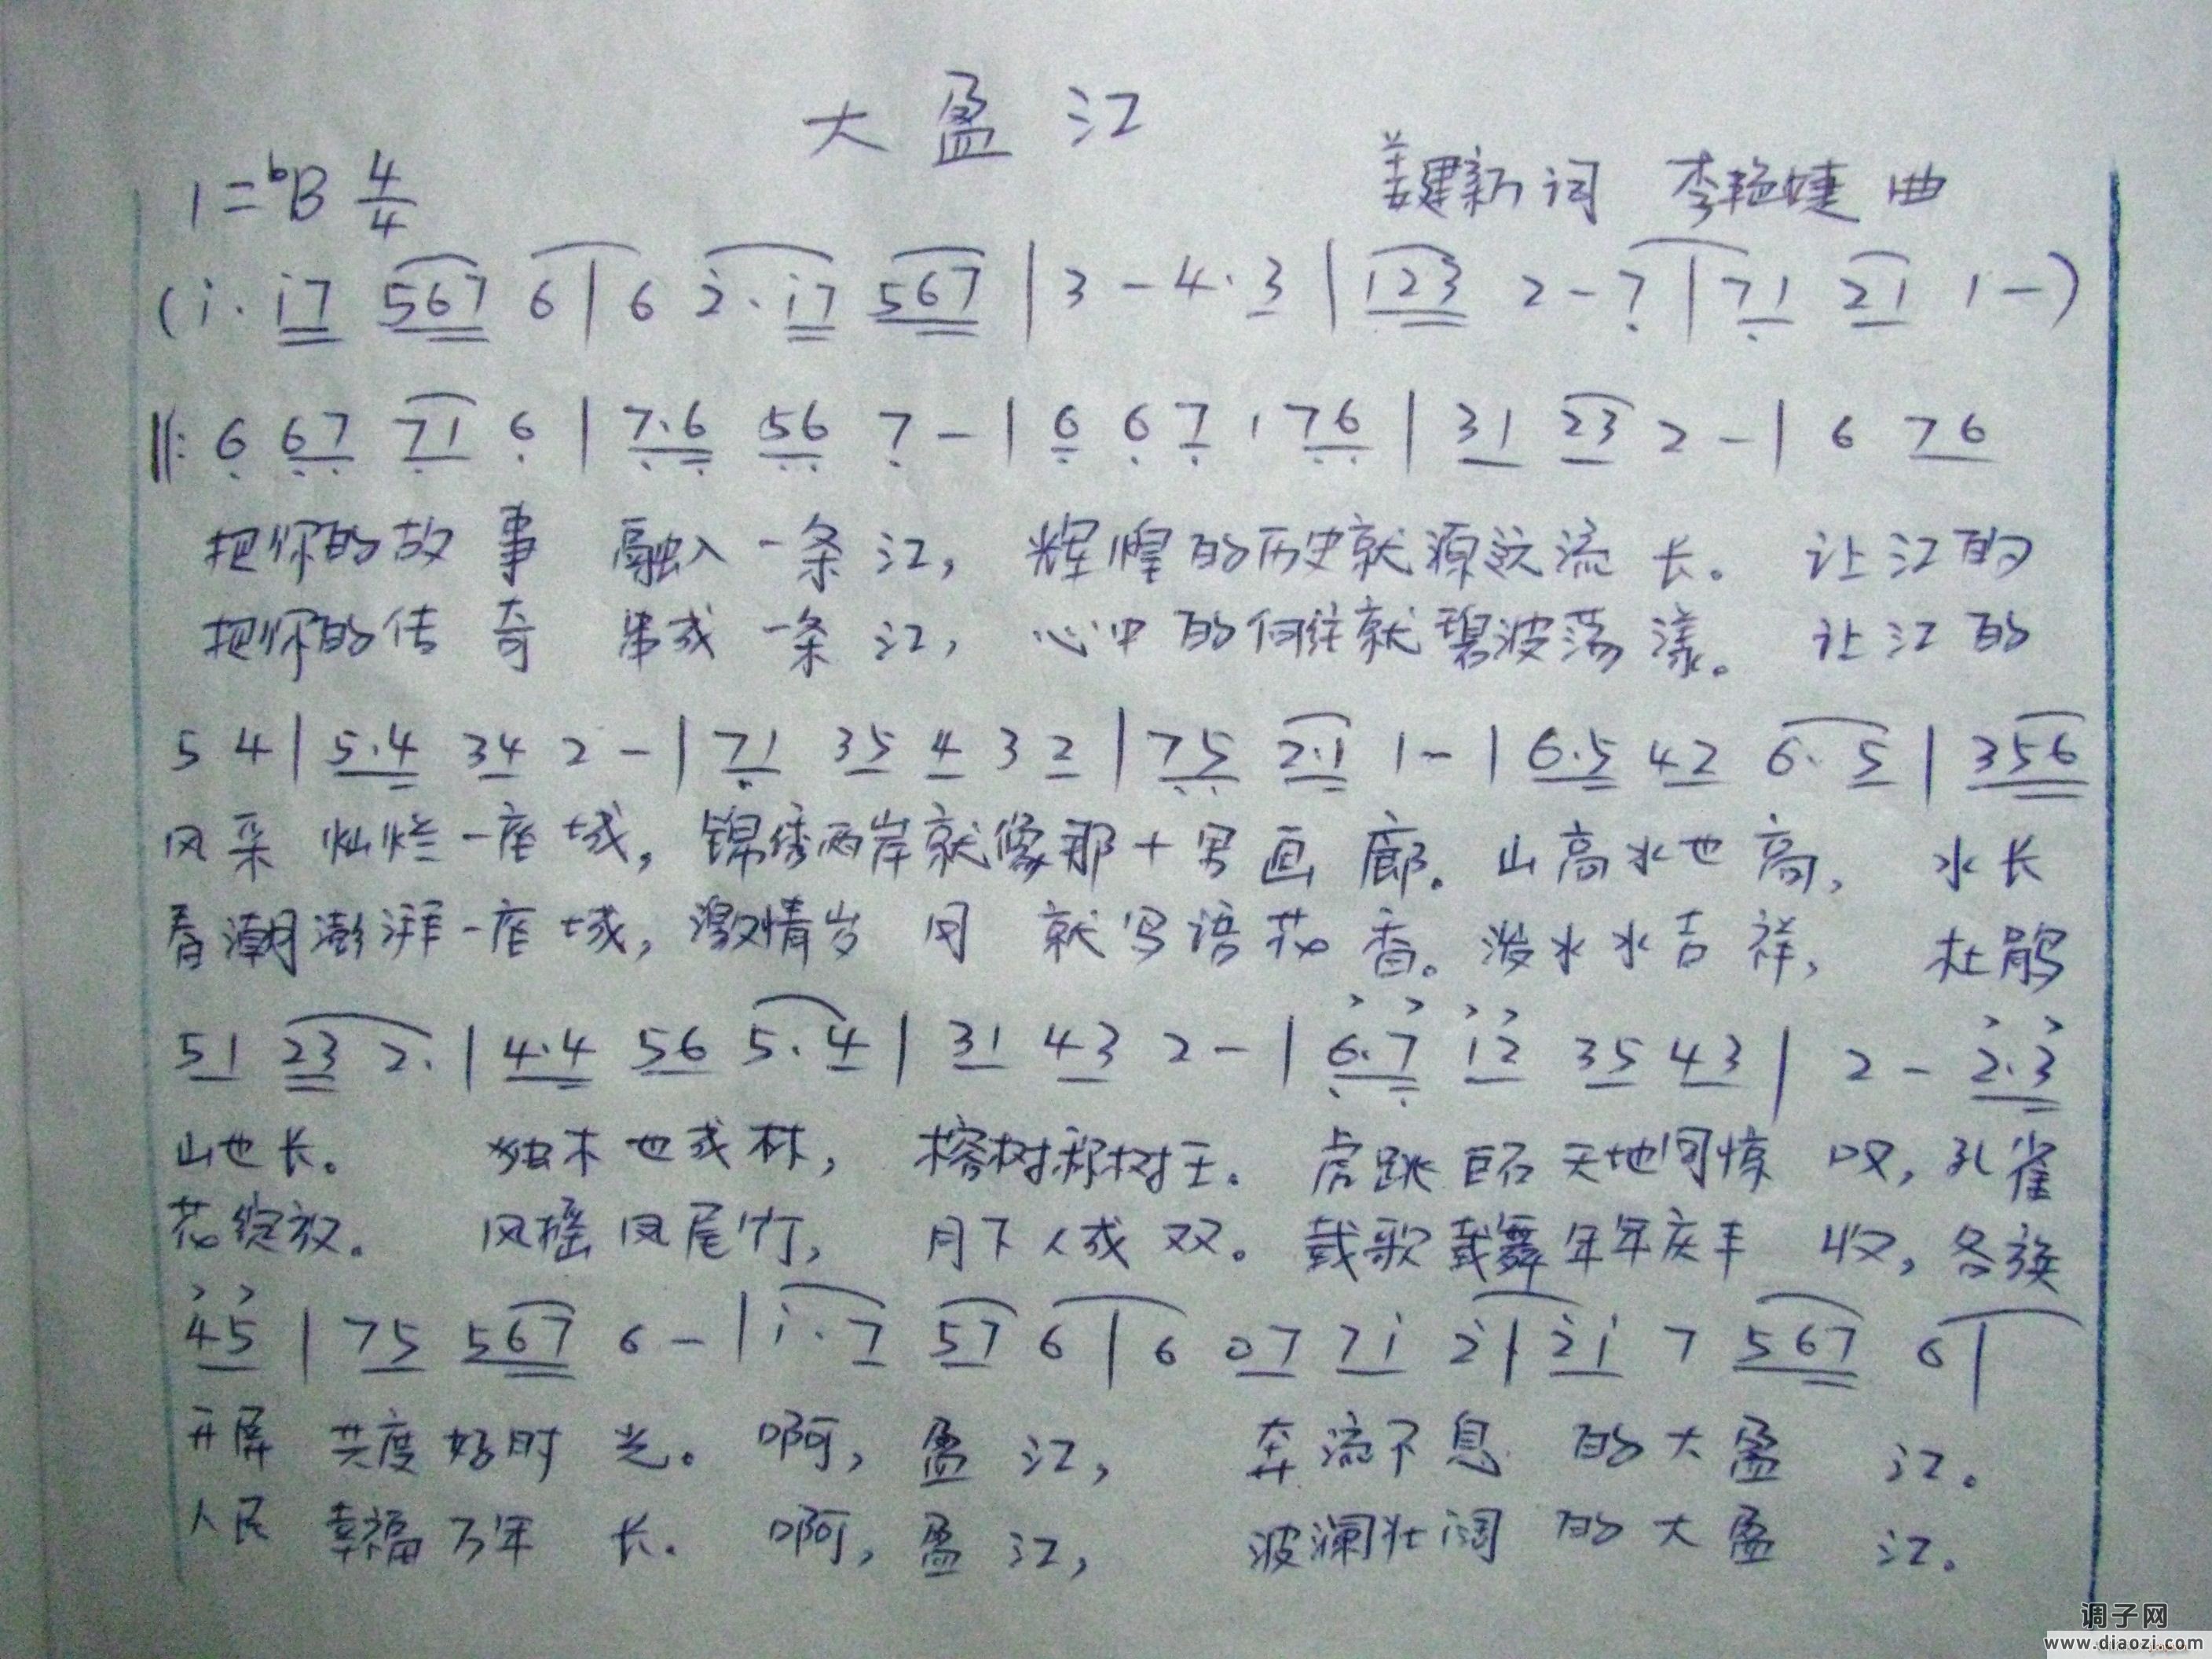 大盈江
1=bB 4/4
姜建新词 李艳婕 曲
(i. i7 567 6 | 6 2. i7 567 | 3 - 4.3 | 123 2 - 7 | 71 21 1 -)
‖: 6 67 71 6 | 7.6 56 7 - | 6 6 7 1 76 | 31 23 2 - | 6 76
把你的故事 融入一条江, 辉煌的历史就源远流长。 让江的
把你的传奇 串成一条江, 心中的向往就碧波荡漾。 让江的
5 4 | 5.4 34 2 - | 71 35 4 3 2 | 75 2.1 1 - | 6.5 42 6. 5 | 356
风采 灿烂一座城, 锦绣两岸就像那十里画廊。 山高水也高, 水长
春潮澎湃一座城, 激情岁月 就鸟语花香。 泼水水吉祥, 杜鹃
51 23 2. | 4.4 56 5.4 | 31 43 2 - | 6.7 12 35 43 | 2 - 2.3
山也长。 独木也成林, 榕树称树王。 虎跳巨石天地间惊叹, 孔雀
花绽放。 风摇凤尾竹, 月下人成双。 载歌载舞年年庆丰收, 各族
45 | 75 567 6 - | i. 7 57 6 | 6 07 7i 2 | 2i 7 567 6 |
开屏 共度好时光。 啊, 盈江, 奔流不息 的大盈江。
人民 幸福万年长。 啊, 盈江, 波澜壮阔 的大盈江.
调子网
www.diaozi.com